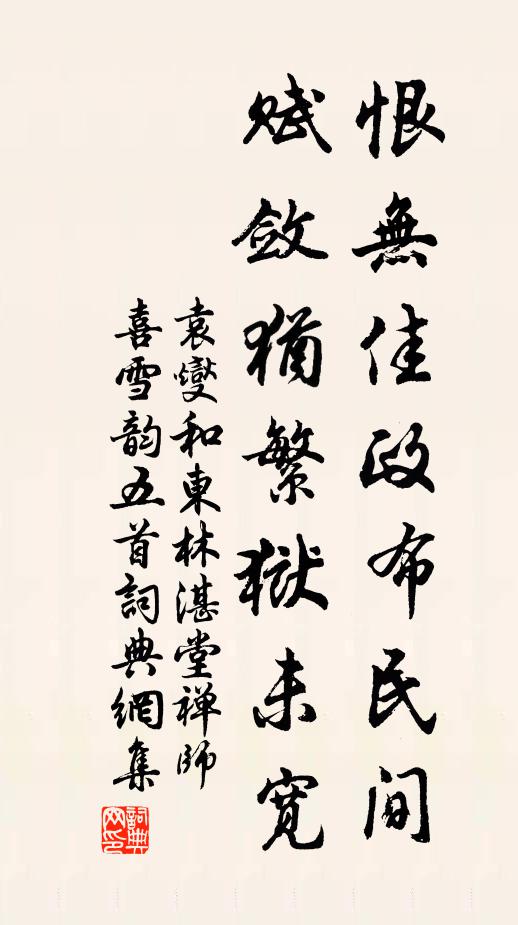 恨無佳政布民間
賦斂猶繁獄未寬
袁燮和東林湛堂禅師
喜雪韵五首詞典網集
詞典網印